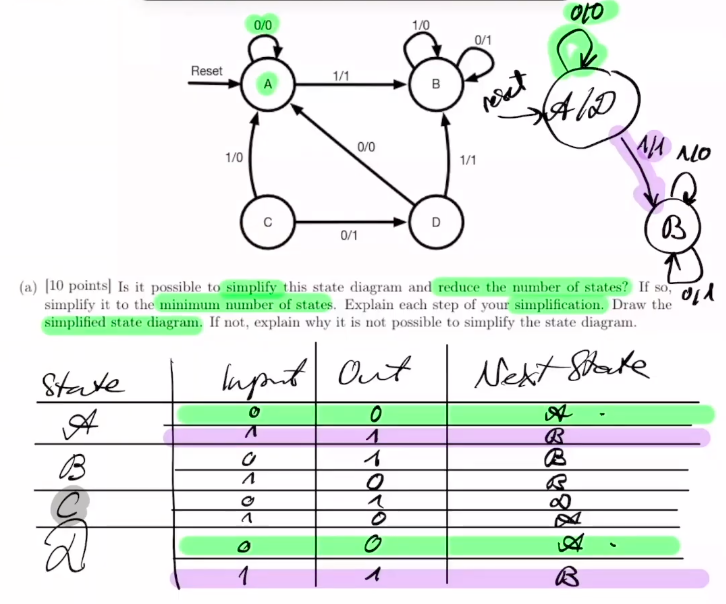 0/0
1/0
0/1
0/0
Reset
A
1/1
B
reset
A/D
1/0
0/0
1/1
1/1
1/0
C
0/1
D
B
0/1
(a) [10 points] Is it possible to simplify this state diagram and reduce the number of states? If so,
simplify it to the minimum number of states. Explain each step of your simplification. Draw the
simplified state diagram. If not, explain why it is not possible to simplify the state diagram.
State Input Out Next State
A 0 0 A
1 1 B
B 0 1 B
1 0 B
C 0 1 D
1 0 A
D 0 0 A
1 1 B